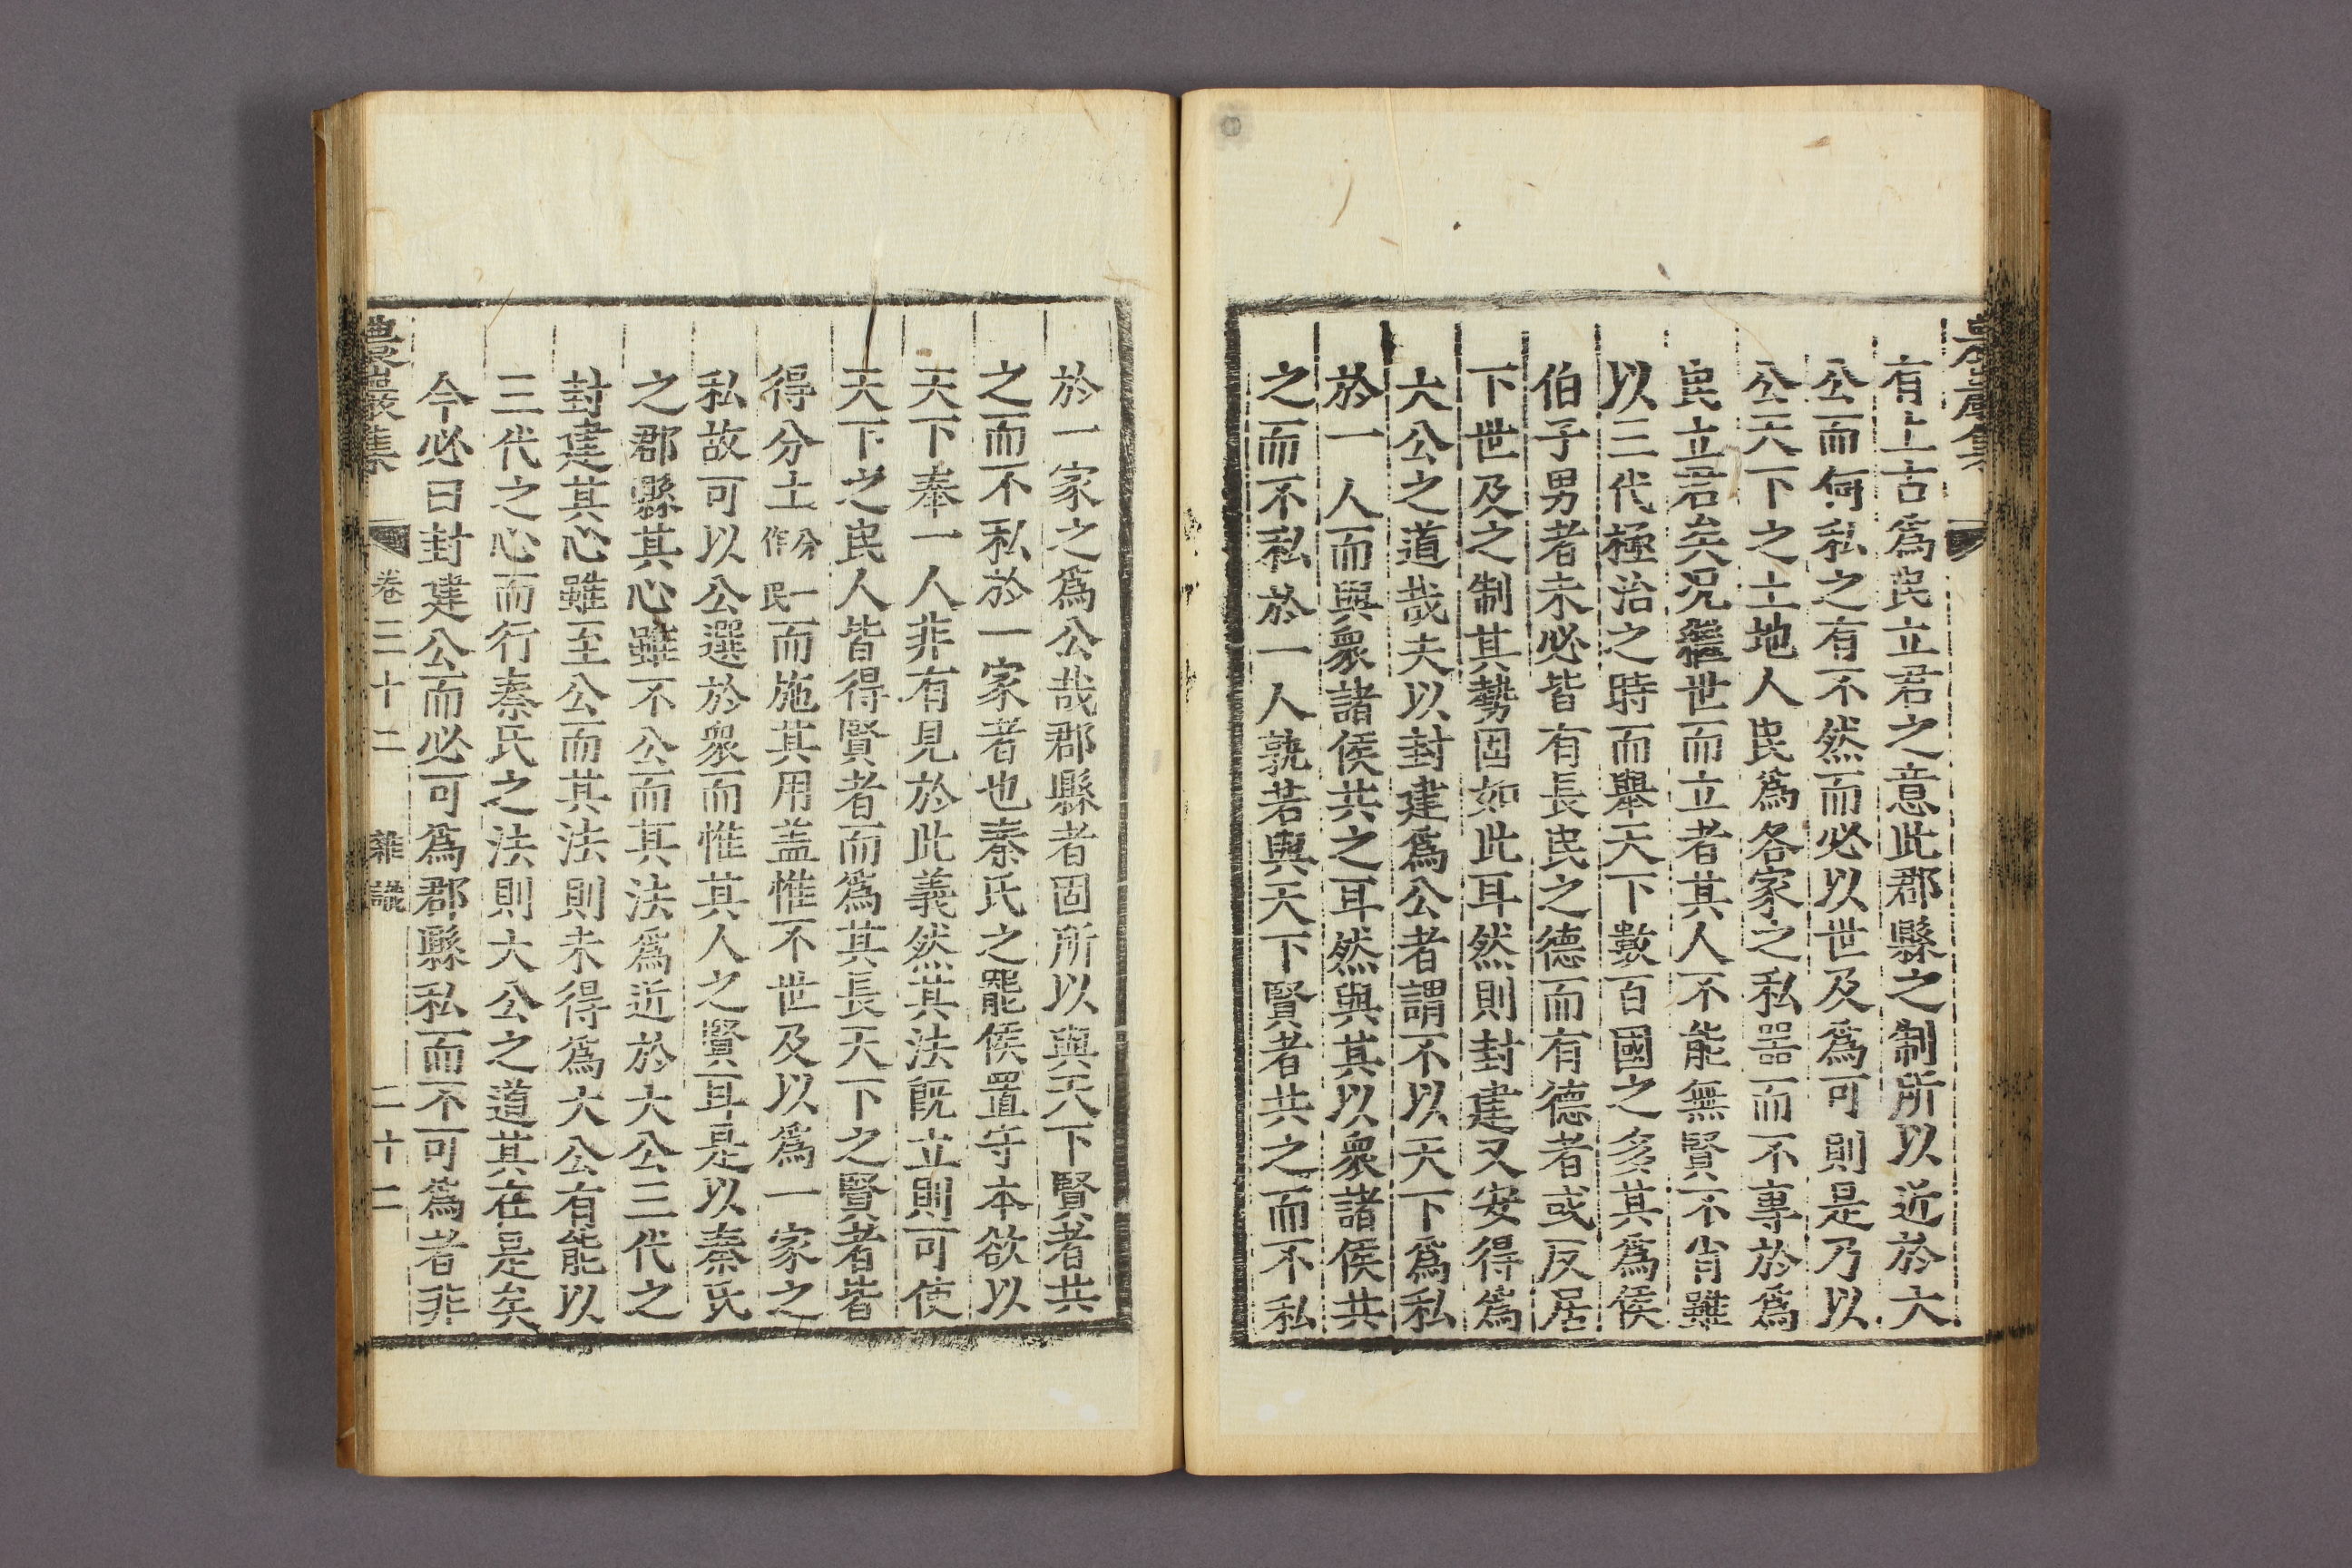 農巖集
有上古爲民立君之意此郡縣之制所以近於大
公而何私之有不然而必以世及爲可則是乃以
公天下之土地人民爲各家之私器而不專於爲
民立君矣况繼世而立者其人不能無賢不肖雖
以三代極治之時而舉天下數百國之多其爲侯
伯子男者未必皆有長民之德而有德者或反居
下世及之制其勢固如此耳然則封建又安得爲
大公之道哉夫以封建爲公者謂不以天下爲私
於一人而與衆諸侯共之耳然與其以衆諸侯共
之而不私於一人孰若與天下賢者共之而不私
於一家之爲公哉郡縣者固所以與天下賢者共
之而不私於一家者也秦氏之罷侯置守本欲以
天下奉一人非有見於此義然其法旣立則可使
天下之民人皆得賢者而爲其長天下之賢者皆
得分土分一作民而施其用盖惟不世及以爲一家之
私故可以公選於衆而惟其人之賢耳是以秦氏
之郡縣其心雖不公而其法爲近於大公三代之
封建其心雖至公而其法則未得爲大公有能以
三代之心而行秦氏之法則大公之道其在是矣
今必曰封建公而必可爲郡縣私而不可爲者非
農巖集 卷三十二 雜識 二十二